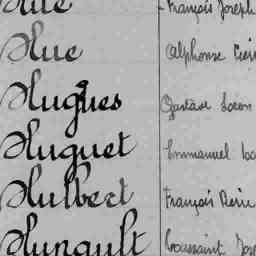 Hue François Joseph
Hue Alphonse
Hugues Gustave Léon
Huguet Emmanuel
Hulbert François René
Hunault Toussaint